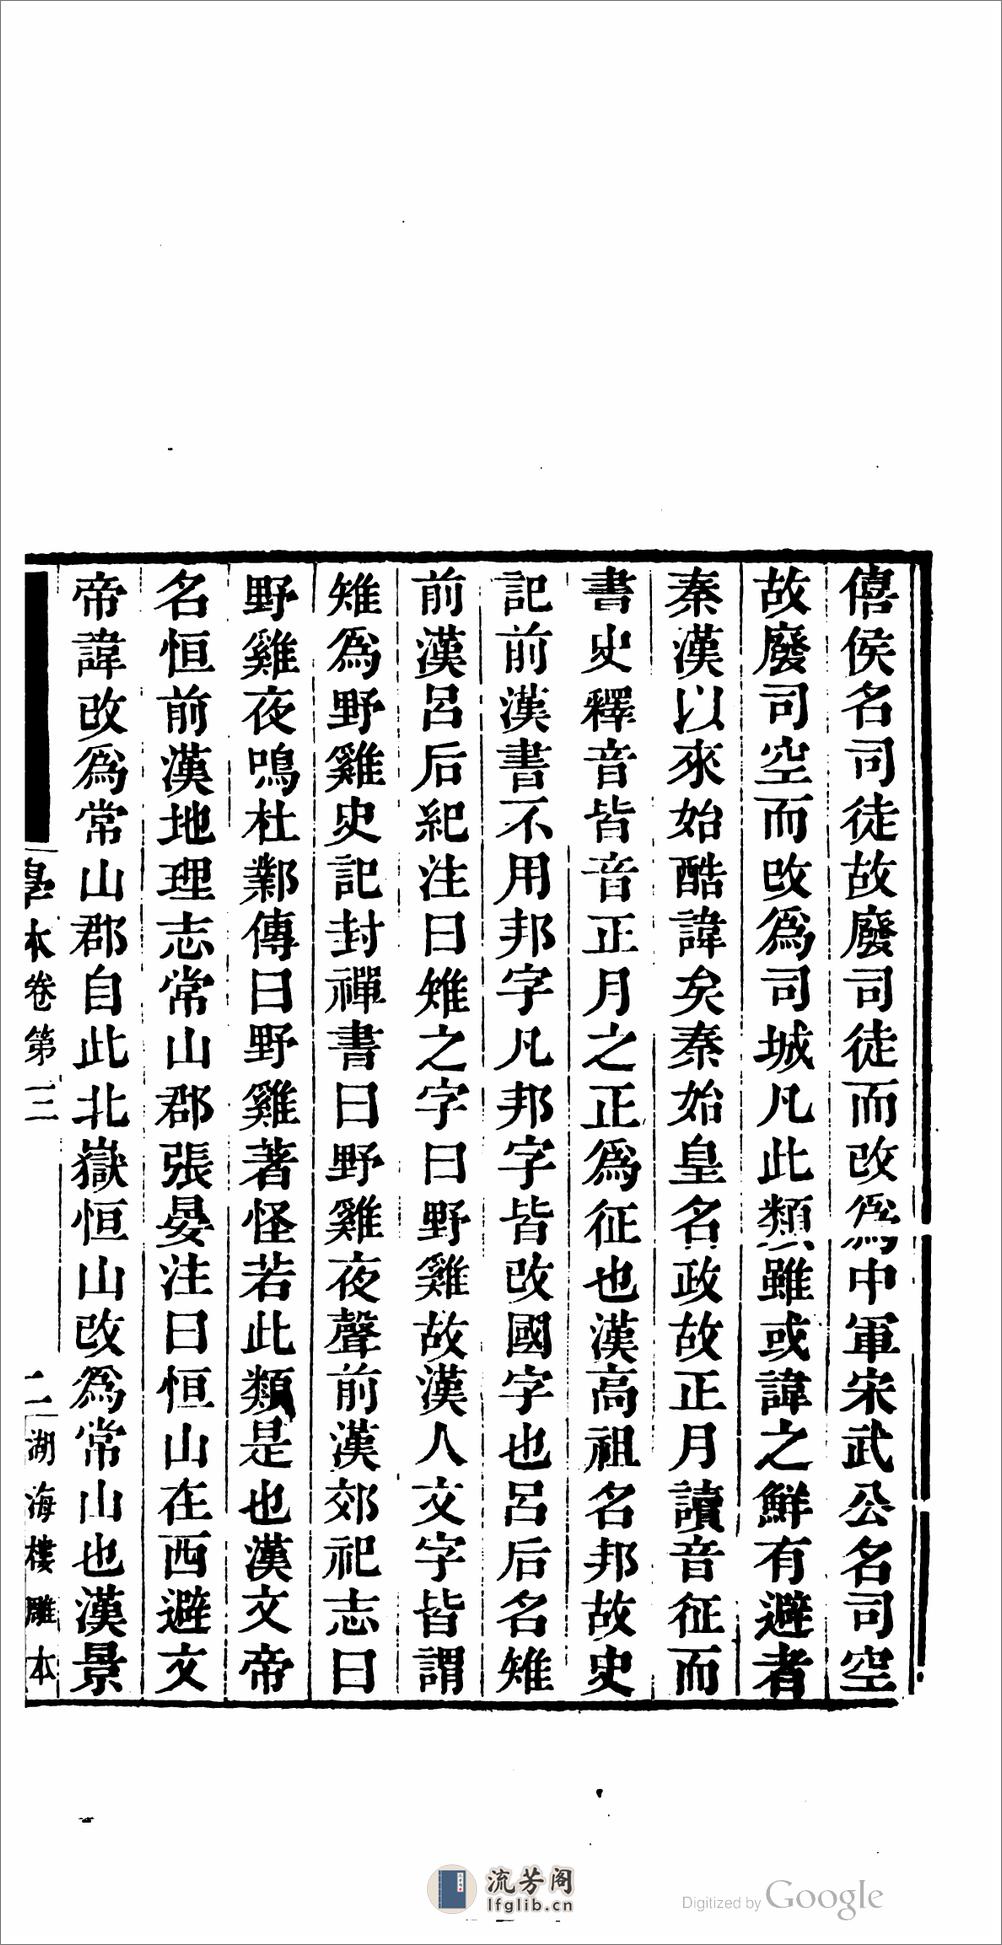 僖侯名司徒故廢司徒而改爲中軍宋武公名司空
故廢司空而改爲司城凡此類雖或諱之鮮有避者
秦漢以來始酷諱矣秦始皇名政故正月讀音征而
書史釋音皆音正月之正爲征也漢高祖名邦故史
記前漢書不用邦字凡邦字皆改國字也呂后名雉
前漢呂后紀注曰雉之字曰野雞故漢人文字皆謂
雉爲野雞史記封禪書曰野雞夜聲前漢郊祀志曰
野雞夜鳴杜鄴傳曰野雞著怪若此類是也漢文帝
名恒前漢地理志常山郡張晏注曰恒山在西避文
帝諱改爲常山郡自此北嶽恒山改爲常山也漢景
本卷第三
二
湖海樓雕本
流芳阁
lfglib.cn
Digitized by Google